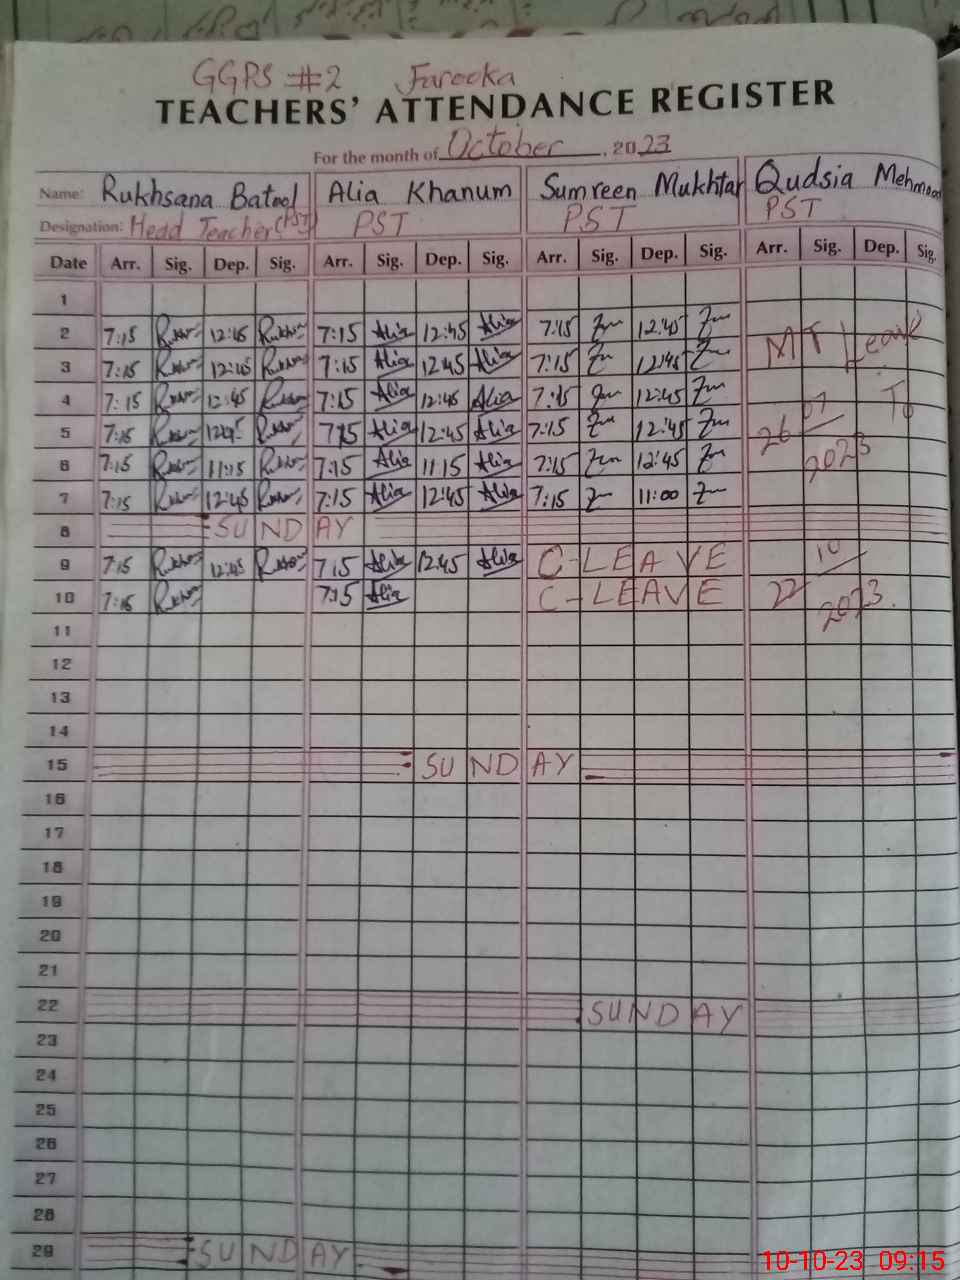 GGPS #2 Farooka
TEACHERS' ATTENDANCE REGISTER
For the month of October, 2023
Name: Rukhsana Batool Alia Khanum Sumreen Mukhtar Qudsia Mehmood
Designation: Head Teacher (PST) PST PST PST
Date Arr. Sig. Dep. Sig. Arr. Sig. Dep. Sig. Arr. Sig. Dep. Sig. Arr. Sig. Dep. Sig.
1
2 7:15 12:45 7:15 Alia 12:45 Alia 7:15 12:45
3 7:15 12:45 7:15 Alia 12:45 Alia 7:15 12:45 MT Leave
4 7:15 12:45 7:15 Alia 12:45 Alia 7:15 12:45 To
5 7:15 12:45 7:15 Alia 12:45 Alia 7:15 12:45 26/07/2023
6 7:15 11:15 7:15 Alia 11:15 Alia 7:15 12:45
7 7:15 12:45 7:15 Alia 12:45 Alia 7:15 11:00
8 SUNDAY
9 7:15 12:45 7:15 Alia 12:45 Alia C-LEAVE
10 7:15 7:15 Alia C-LEAVE 22/10/2023.
11
12
13
14
15 SUNDAY
16
17
18
19
20
21
22 SUNDAY
23
24
25
26
27
28
29 SUNDAY
10-10-23 09:15